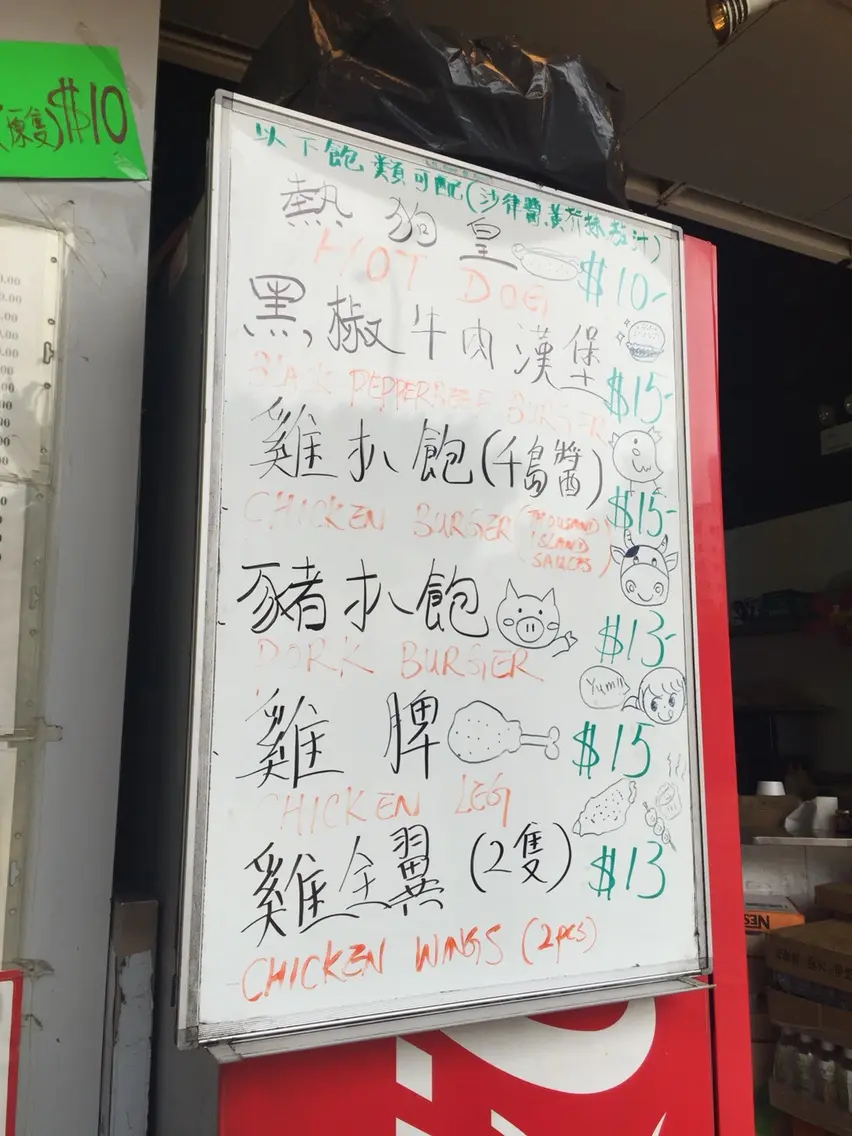 (原隻)$10
以下飽類可配(沙律醬,黃芥辣,茄汁)
熱狗皇 $10-
HOT DOG
黑椒牛肉漢堡 $15-
BLACK PEPPER BEEF BURGER
雞扒飽(千島醬) $15-
CHICKEN BURGER (THOUSAND ISLAND SAUCES)
豬扒飽 $13-
PORK BURGER
Yum!!
雞脾 $15
CHICKEN LEG
雞全翼(2隻) $13
CHICKEN WINGS (2pcs)
NES